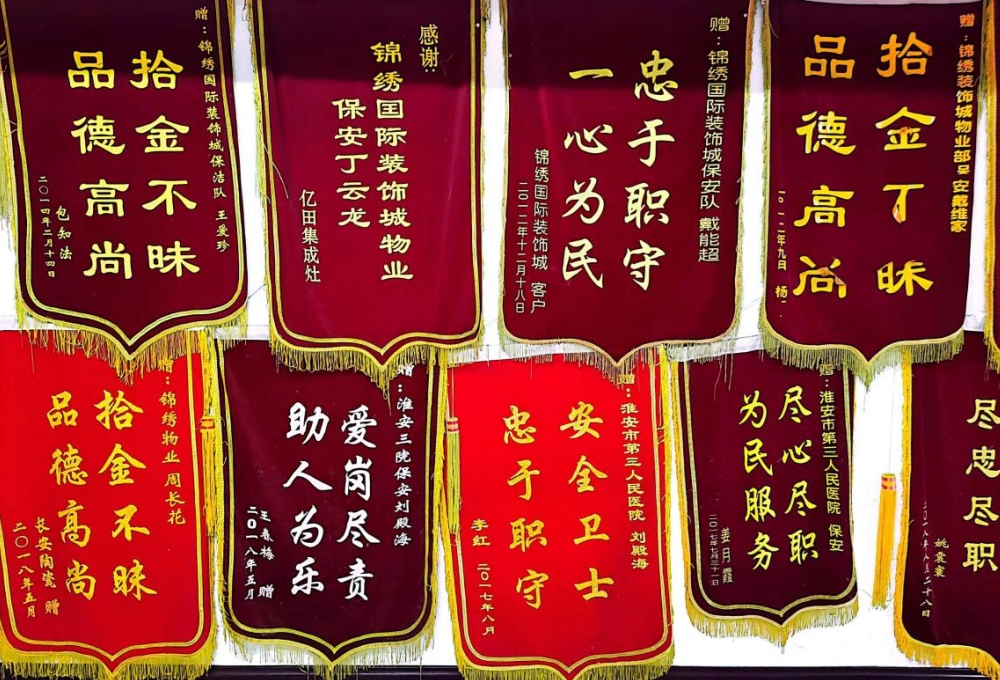 赠：锦绣国际装饰城保洁队 王爱珍
拾金不昧
品德高尚
包知法
二〇一四年二月十四日
感谢：
锦绣国际装饰城物业
保安丁云龙
亿田集成灶
赠：锦绣国际装饰城保安队 戴能超
忠于职守
一心为民
锦绣国际装饰城 客户
二〇一二年十二月十八日
赠：锦绣装饰城物业部
安戴维家
拾金丁昧
品德高尚
二年九日 杨
赠：锦绣物业 周长花
拾金不昧
品德高尚
安陶瓷 赠
二〇一八年五月
赠：淮安三院保安刘殿海
爱岗尽责
助人为乐
王春梅 赠
二〇一八年五月
赠：淮安市第三人民医院 刘殿海
安全卫士
忠于职守
李红
二〇一七年八月
赠：淮安市第三人民医院 保安
尽心尽职
为民服务
姜月霞
二〇一七年七月三十一日
尽忠尽职
姚
二十八日